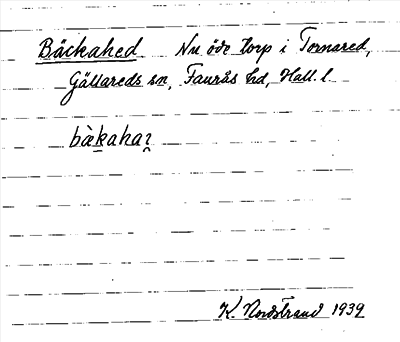 Bäckahed Nu öde torp i Tornared,
Gällareds sn, Faurås hd, Hall. l.
bàkahaꝛ
K. Nordstrand 1939